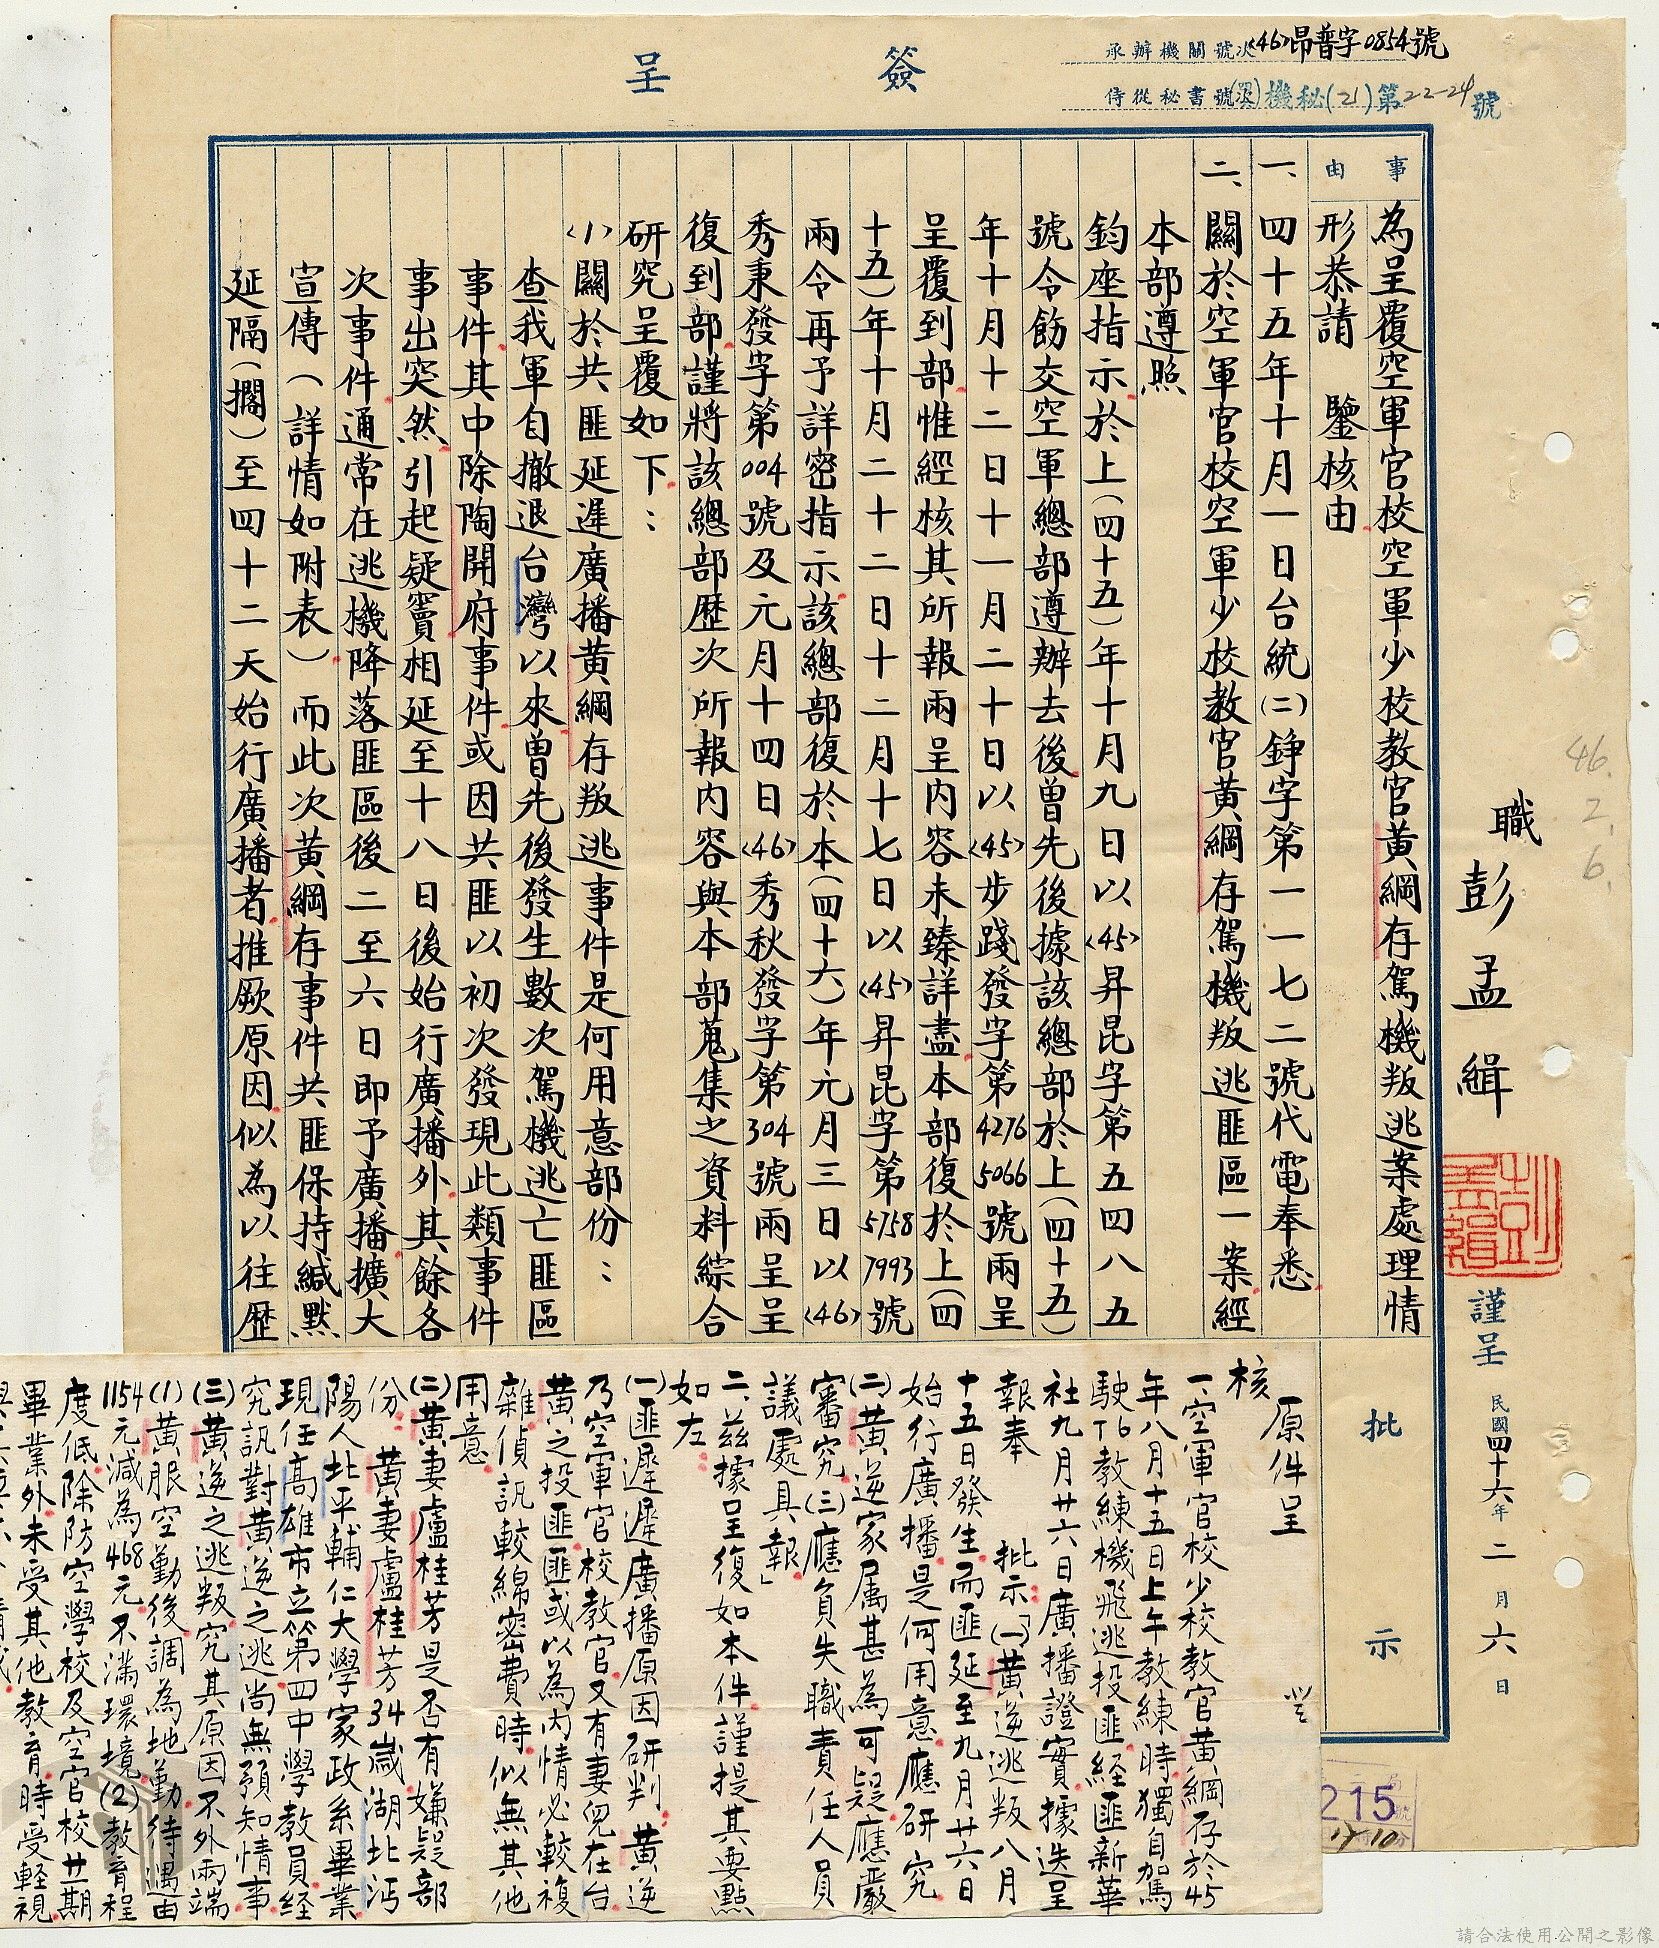 簽呈
承辦機關號次(46)昂普字0854號
侍從秘書號次機秘(21)第22-24號
事由
為呈覆空軍官校空軍少校教官黃綱存駕機叛逃案處理情
形恭請 鑒核由
一、四十五年十月一日台統(二)錚字第一一七二號代電奉悉
二、關於空軍官校空軍少校教官黃綱存駕機叛逃匪區一案經
本部遵照
鈞座指示於上(四十五)年十月九日以(45)昇昆字第五四八五
號令飭交空軍總部遵辦去後曾先後據該總部於上(四十五)
年十月十二日十一月二十日以(45)步踐發字第4276 5066號兩呈
呈覆到部惟經核其所報兩呈內容未臻詳盡本部復於上(四
十五)年十月二十二日十二月十七日以(45)昇昆字第5758 7993號
兩令再予詳密指示該總部復於本(四十六)年元月三日以(46)
秀秉發字第004號及元月十四日(46)秀秋發字第304號兩呈呈
復到部謹將該總部歷次所報內容與本部蒐集之資料綜合
研究呈覆如下：
(1)關於共匪延遲廣播黃綱存叛逃事件是何用意部份：
查我軍自撤退台灣以來曾先後發生數次駕機逃亡匪區
事件其中除陶開府事件或因共匪以初次發現此類事件
事出突然引起疑竇相延至十八日後始行廣播外其餘各
次事件通常在逃機降落匪區後二至六日即予廣播擴大
宣傳(詳情如附表)而此次黃綱存事件共匪保持緘默
延隔(擱)至四十二天始行廣播者推厥原因似為以往歷
職 彭孟緝
彭孟緝
謹呈 民國四十六年二月六日
46.2.6.
批示
原件呈
核
一、空軍官校少校教官黃綱存於45
年八月十五日上午教練時獨自駕
駛T6教練機飛逃投匪經匪新華
社九月廿六日廣播證實據迭呈
報奉 批示「(一)黃逆逃叛八月
十五日發生而匪延至九月廿六日
始行廣播是何用意應研究
(二)黃逆家屬甚為可疑應嚴
審究(三)應負失職責任人員
議處具報」
二、茲據呈復如本件謹提其要點
如左：
(一)匪遲遲廣播原因研判：黃逆
乃空軍官校教官又有妻兒在台
黃之投匪匪或以為內情必較複
雜偵訊較綿密費時似無其他
用意
(二)黃妻盧桂芳是否有嫌疑部
份：黃妻盧桂芳34歲湖北沔
陽人北平輔仁大學家政系畢業
現任高雄市立第四中學教員經
究訊對黃逆之逃尚無預知情事
(三)黃逆之逃叛究其原因不外兩端
(1)黃服空勤後調為地勤待遇由
1154元減為468元不滿環境(2)教育程
度低除防空學校及空官校廿期
畢業外未受其他教育時受輕視
215
請合法使用公開之影像